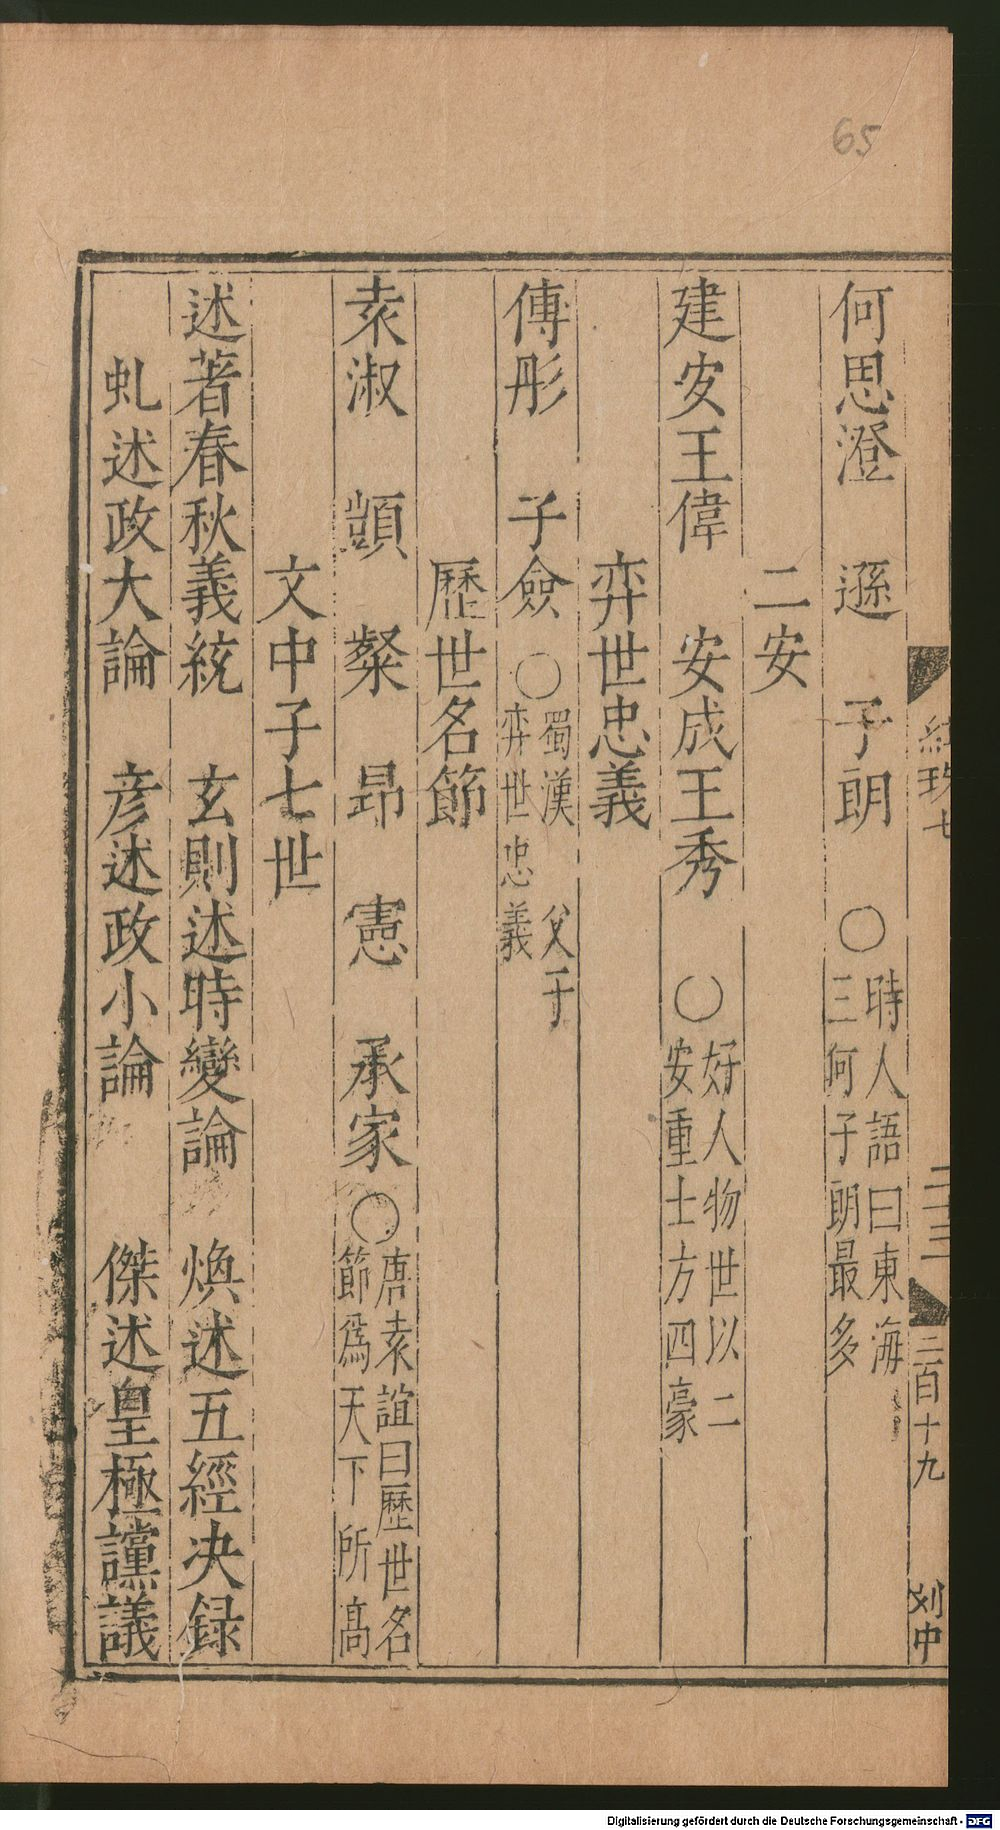 65
何思澄 遜 子朗 ○時人語曰東海三何子朗最多
二安
建安王偉 安成王秀 ○好人物世以二安重士方四豪
弈世忠義
傅彤 子僉 ○蜀漢父子弈世忠義
歷世名節
袁淑 顗 粲 昂 憲 承家○唐袁誼曰歷世名節爲天下所高
文中子七世
述著春秋義統 玄則述時變論 煥述五經决録
虬述政大論 彦述政小論 傑述皇極讜議
二十三
三百十九
刘中
Digitalisierung gefördert durch die Deutsche Forschungsgemeinschaft - DFG